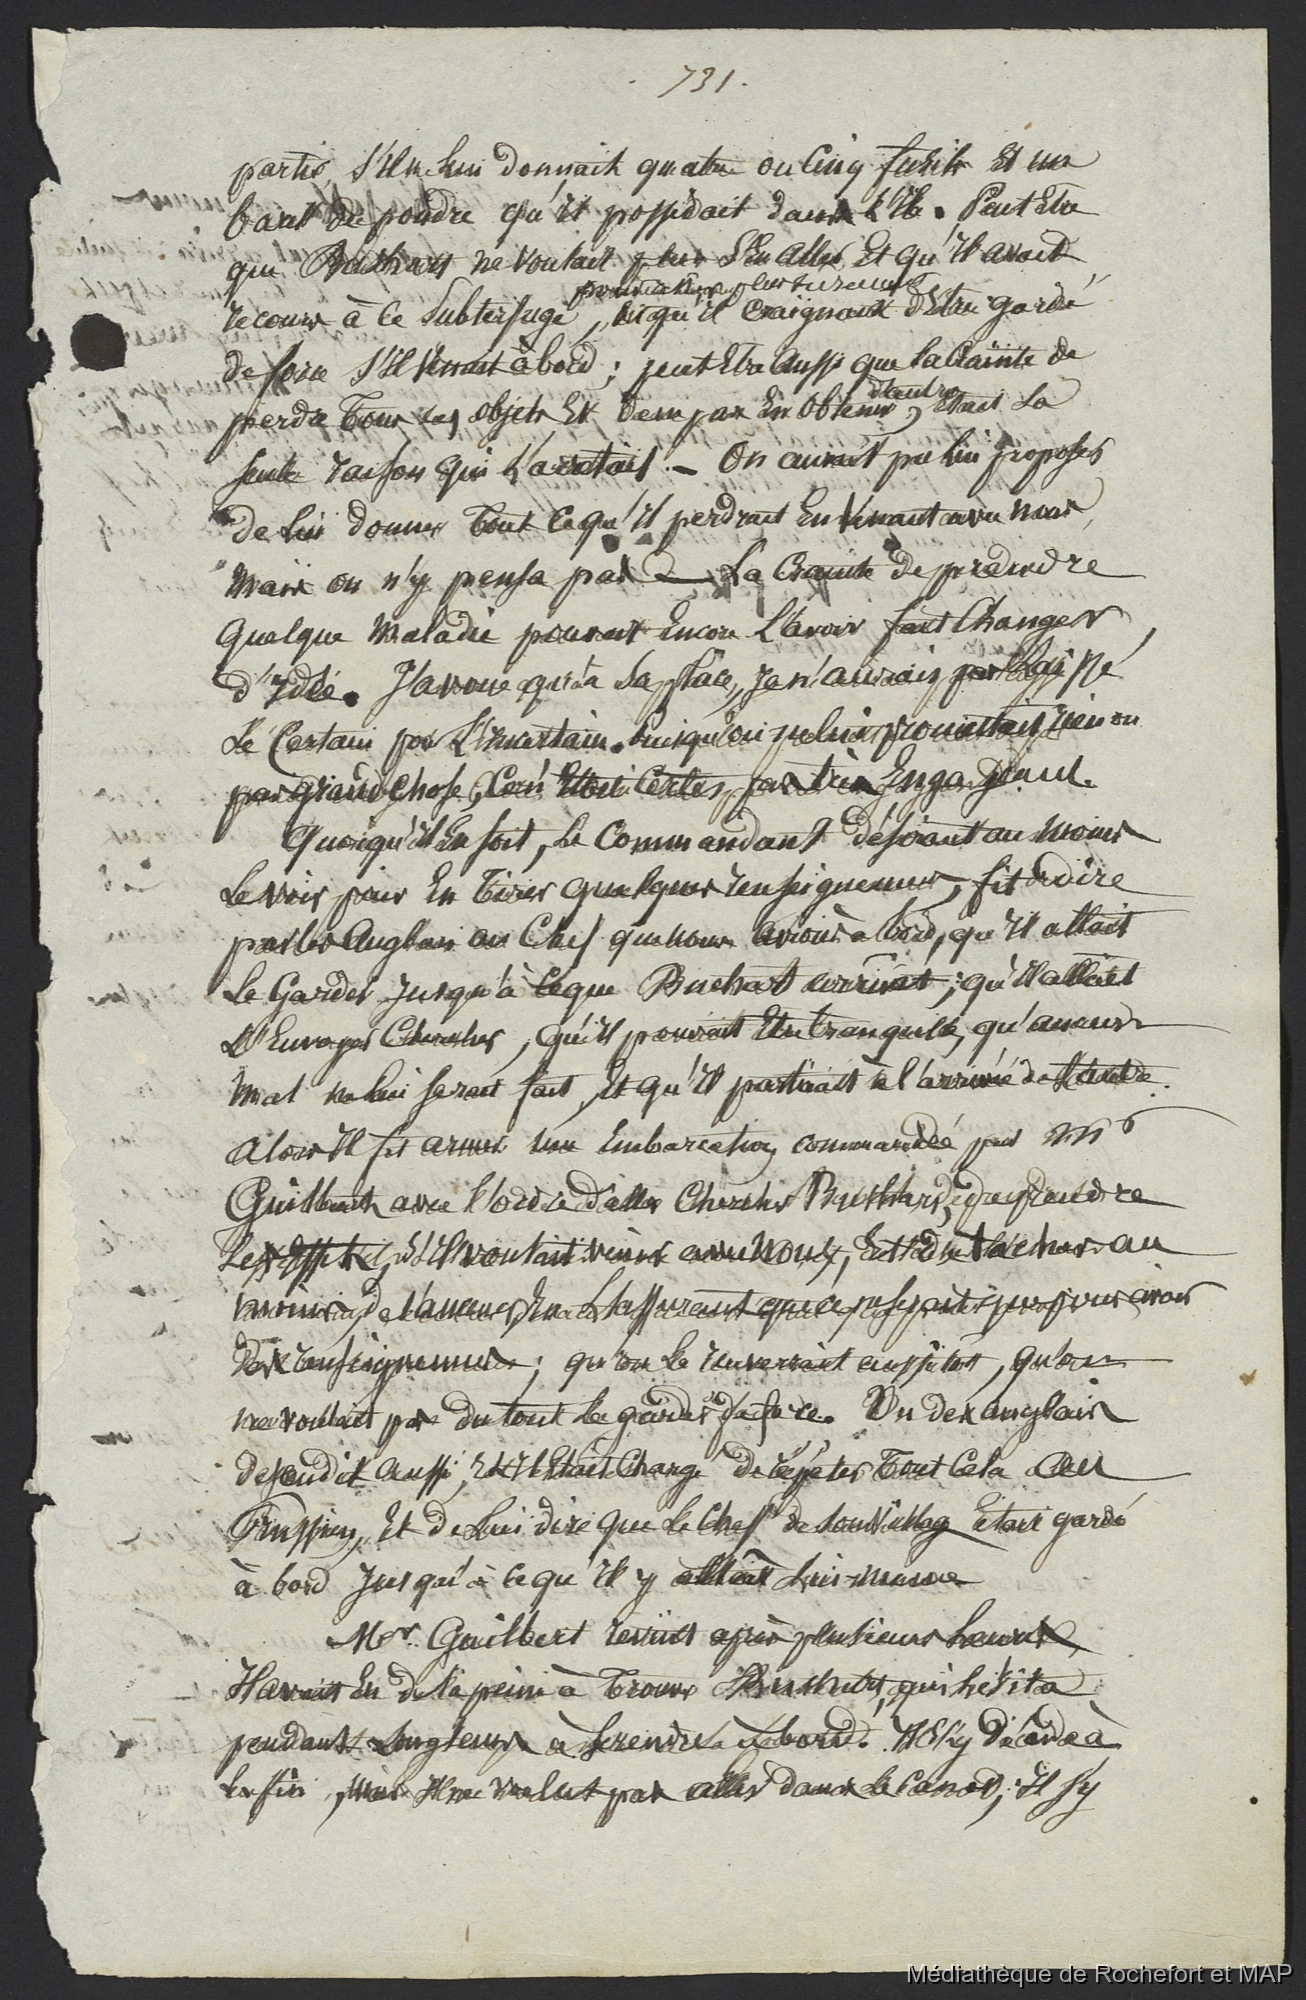 . 731 .
partir, s'il ne lui donnait quatre ou cinq fusils Et un
baril de poudre qu'il possédait dans l'Ile. Peut Etre
que Bushart ne voulait plus s'En aller, Et qu'il avait
plus surement
recours à ce subterfuge, Et qu'il craignait d'Etre gardé
de force s'il Venait à bord ; peut Etre aussi que la Crainte de
d'autres
perdre Tous ses objets Et de n'pas En obtenir, Etait la
seule raison qui l'arrêtait. — On aurait pu lui proposer
de lui donner Tout ce qu'il perdrait En Venant avec nous,
mais on n'y pensa pas. La Crainte de prendre
quelque maladie pouvait Encore l'avoir fait Changer
d'Idée. J'avoue qu'à sa place, Je n'aurais pas laissé
le Certain pour l'Incertain. Puisqu'on ne lui promettait rien ou
pas grand chose, Ce n'Etait Certes pas très Engageant.
Quoiqu'il En soit, le Commandant désirant au moins
le voir pour En Tirer quelques renseignemens, fit dire
par les Anglais au Chef que nous avions à bord, qu'il allait
le Garder Jusqu'à ce que Bushart arrivat ; qu'il allait
l'Envoyer Chercher, qu'il pouvait Etre tranquille, qu'aucun
mal ne lui serait fait, Et qu'il partirait à l'arrivée de l'autre.
Alors il fit armer une Embarcation commandée par Mr
Guilbert avec l'ordre d'aller Chercher Bushard, de prendre
ses Effets, s'il voulait venir avec nous, Et de tacher au
moins de l'amener En l'assurant que ce ne serait que pour avoir
des renseignemens ; qu'on le renverrait aussitot, qu'on
ne voulait pas du tout le garder de force. Un des anglais
descendit aussi, Et Il Etait Chargé de répéter Tout Cela au
Prussien, Et de lui dire que le Chef de son Village Etait gardé
à bord Jusqu'à ce qu'il y allât lui-meme
Mr. Guilbert revint après plusieurs heures,
Il avait Eu de la peine à Trouver Bushart, qui hésita
pendant longtems à se rendre à bord. Il s'y décida à
la fin, mais Il ne voulut pas aller dans le Canot ; il s'y
Médiathèque de Rochefort et MAP